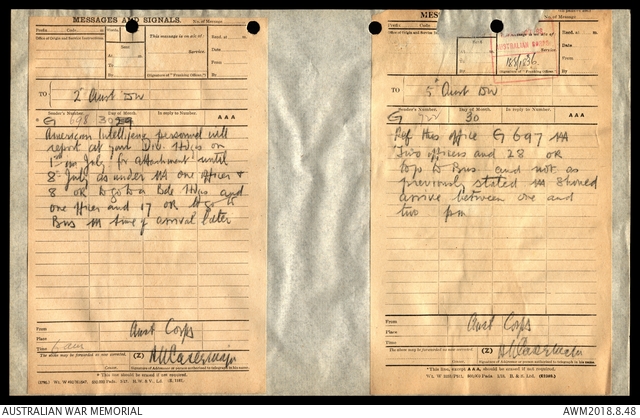 MESSAGES AND SIGNALS.
No. of Message
Prefix Code m.
Office of Origin and Service Instructions.
Sent
At m.
To
By
This message is on a/c of:
Service.
(Signature of "Franking Officer")
Recd. at m.
Date
From
By
TO 2 Aust Div
Sender's Number.
Day of Month.
In reply to Number.
AAA
G 698 30
American Intelligence personnel will
report at your Div. Hdqs on
1st July for attachment until
8th July as under AAA one officer &
8 OR to go to a Bde Hdqs and
one officer and 17 OR to go to
Bns AAA time of arrival later
From Aust Corps
Place
Time
The above may be forwarded as now corrected.
(Z)
Censor.
Signature of Addressor or person authorised to telegraph in his name.
* This line should be erased if not required.
MES
No. of Message
Prefix
Office of Origin
Service.
(Signature of "Franking Officer")
Recd. at m.
Date
From
By
AUSTRALIAN CORPS
TO 5 Aust Div
Sender's Number.
Day of Month.
In reply to Number.
AAA
G 702 30
Ref this office G 697 AAA
Two officers and 28 OR
to go to Bns and not as
previously stated AAA Should
arrive between one and
two pm
From Aust Corps
Place
Time
The above may be forwarded as now corrected.
(Z)
Censor.
Signature of Addressor or person authorised to telegraph in his name.
* This line, except AAA, should be erased if not required.
AUSTRALIAN WAR MEMORIAL
AWM2018.8.48